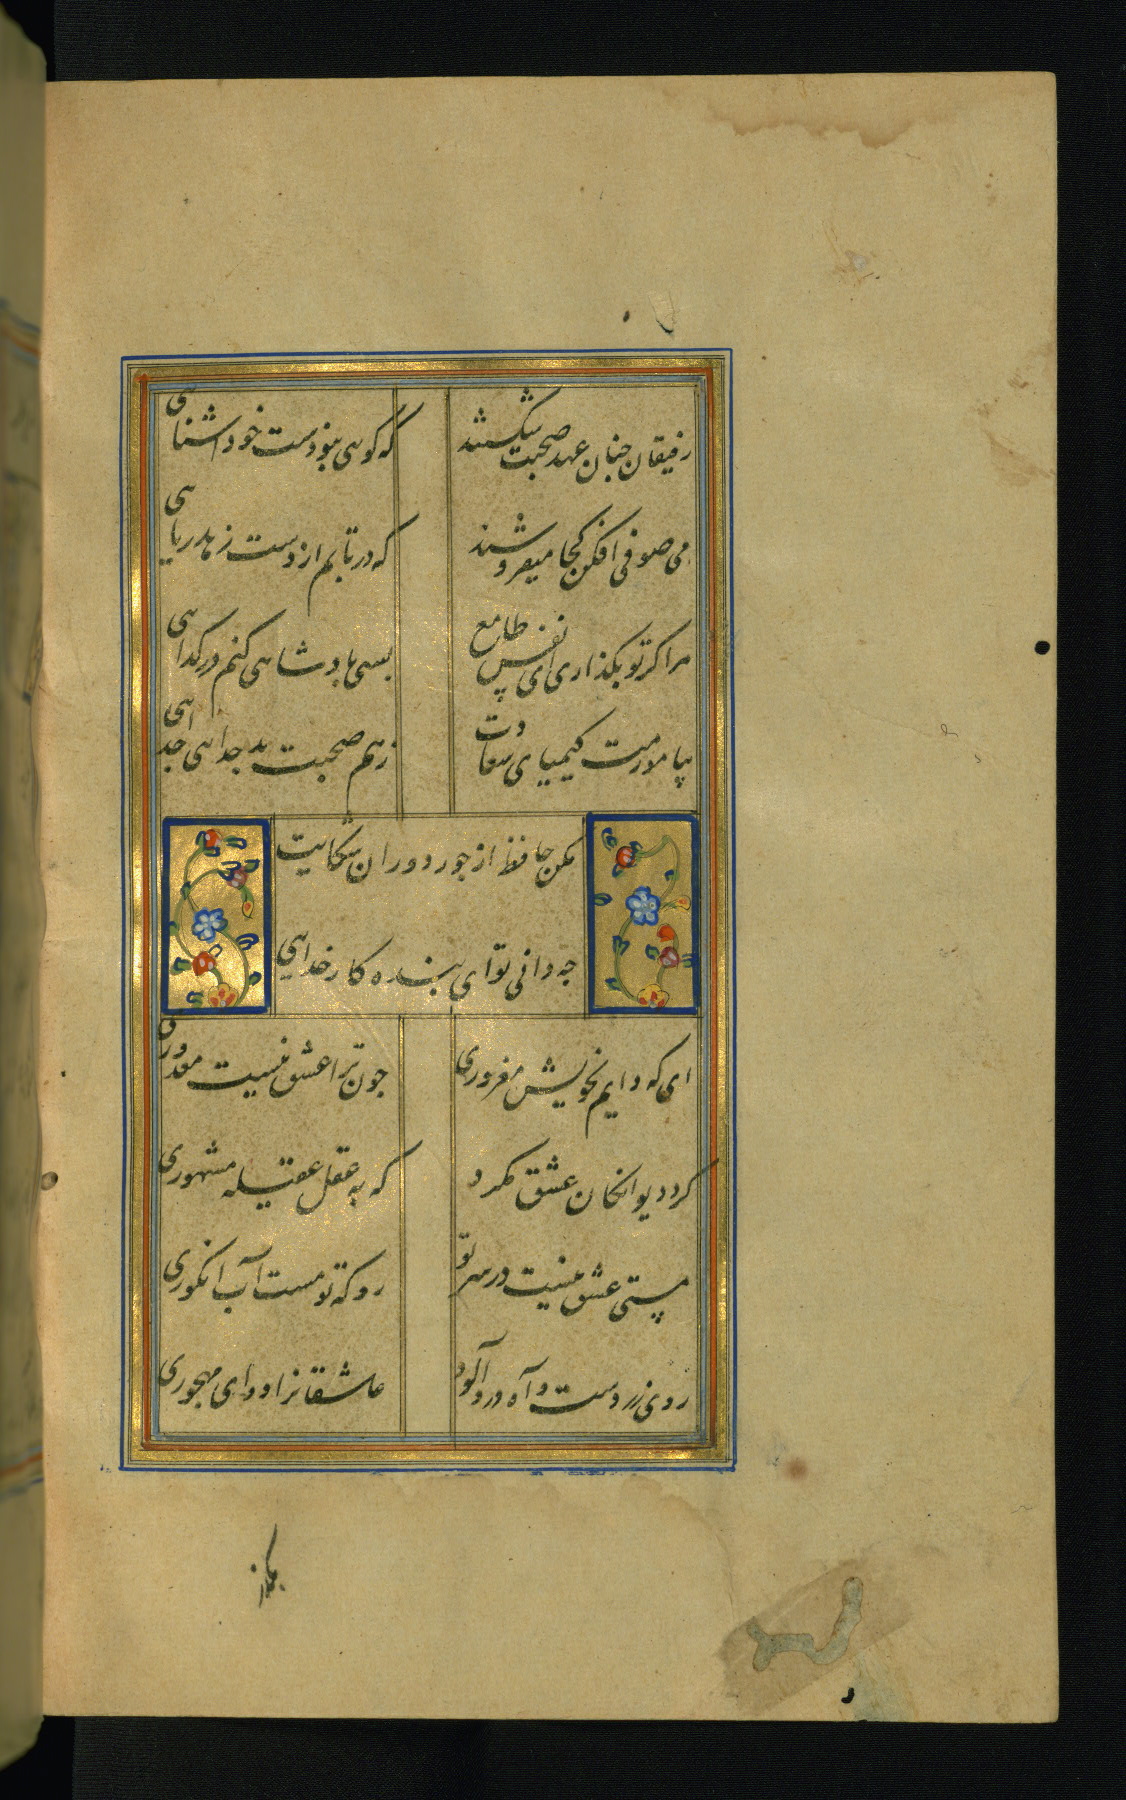 رفیقان جنان عهد صحبت شکستند که کوهی نبودست خود اشنایهی
می صوفی افکن کجا میفروشند که در تابم از دست زهد ریاهی
مرا کر تو بکذاری ای نفس طامع بسی پادشاهی کنم در کداهی
بیاموزمت کیمیای سعادت زهم صحبت بد جداهی جداهی
مکن حافظ از جور دوران شکایت
جه دانی تو ای بنده کار خدایی
ای که دایم بخویش مغروری جون ترا عشق نیست معذوری
کرد دیوانکان عشق مکرد که به عقل عقیله مشهوری
مستی عشق نیست در سر تو رو که تو مست آب انکوری
روی زردست و آه درد آلود عاشقانرا دوای مهجوری
بکذر